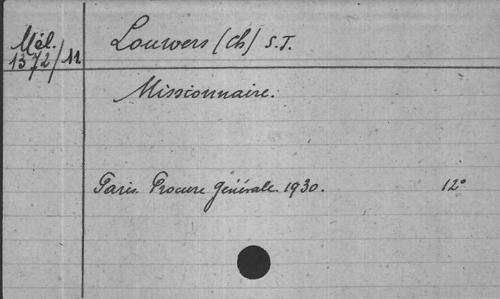 Mél.
1372/11
Louwers (Ch) S.J.
Missionnaire.
Paris. Procure Générale. 1930. 12°